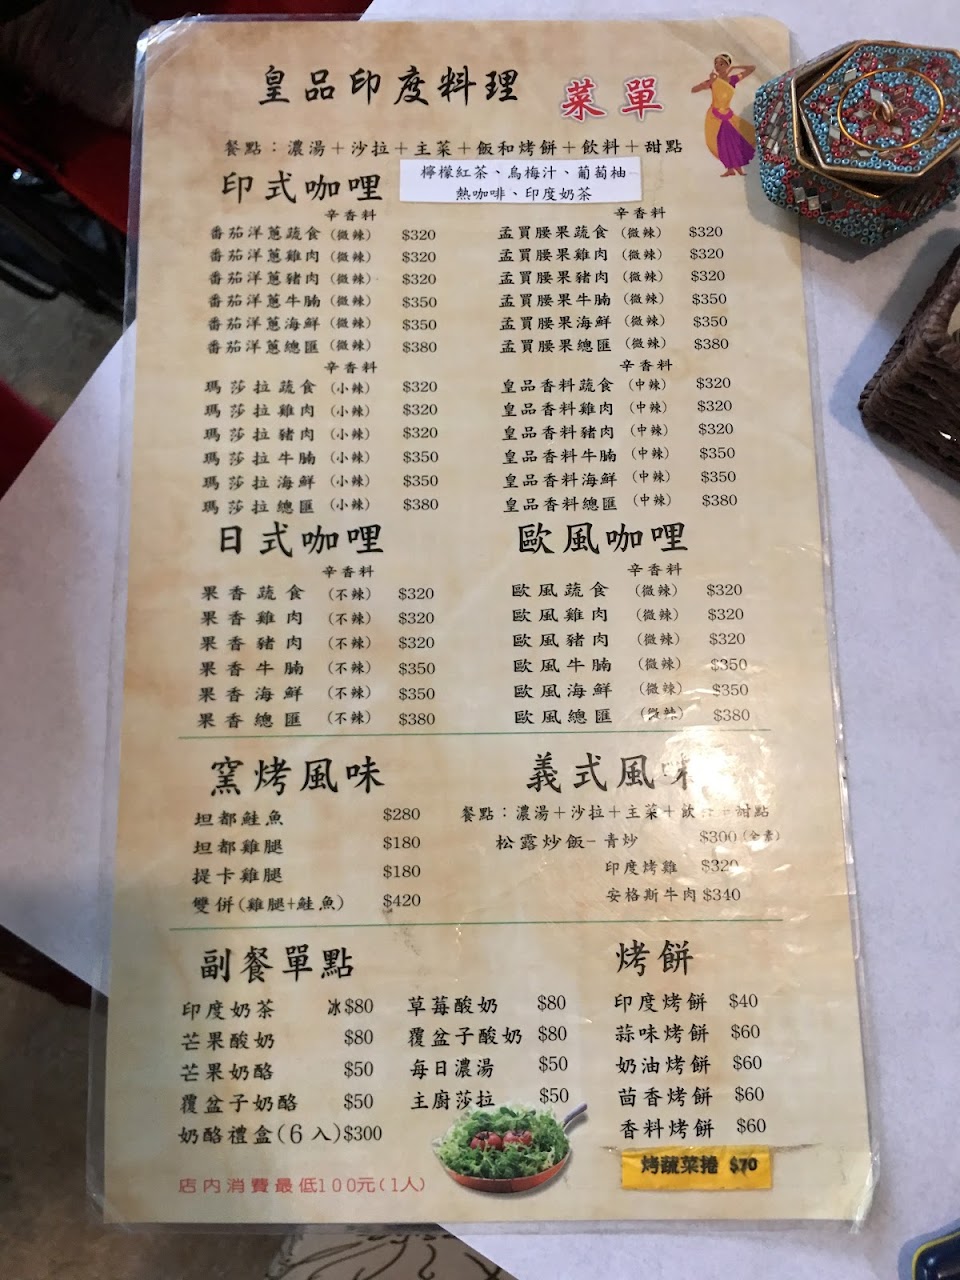 皇品印度料理 菜單
餐點：濃湯＋沙拉＋主菜＋飯和烤餅＋飲料＋甜點
檸檬紅茶、烏梅汁、葡萄柚
熱咖啡、印度奶茶
印式咖哩
辛香料
番茄洋蔥蔬食 (微辣) $320
番茄洋蔥雞肉 (微辣) $320
番茄洋蔥豬肉 (微辣) $320
番茄洋蔥牛腩 (微辣) $350
番茄洋蔥海鮮 (微辣) $350
番茄洋蔥總匯 (微辣) $380
辛香料
孟買腰果蔬食 (微辣) $320
孟買腰果雞肉 (微辣) $320
孟買腰果豬肉 (微辣) $320
孟買腰果牛腩 (微辣) $350
孟買腰果海鮮 (微辣) $350
孟買腰果總匯 (微辣) $380
辛香料
瑪莎拉蔬食 (小辣) $320
瑪莎拉雞肉 (小辣) $320
瑪莎拉豬肉 (小辣) $320
瑪莎拉牛腩 (小辣) $350
瑪莎拉海鮮 (小辣) $350
瑪莎拉總匯 (小辣) $380
辛香料
皇品香料蔬食 (中辣) $320
皇品香料雞肉 (中辣) $320
皇品香料豬肉 (中辣) $320
皇品香料牛腩 (中辣) $350
皇品香料海鮮 (中辣) $350
皇品香料總匯 (中辣) $380
日式咖哩
辛香料
果香蔬食 (不辣) $320
果香雞肉 (不辣) $320
果香豬肉 (不辣) $320
果香牛腩 (不辣) $350
果香海鮮 (不辣) $350
果香總匯 (不辣) $380
歐風咖哩
辛香料
歐風蔬食 (微辣) $320
歐風雞肉 (微辣) $320
歐風豬肉 (微辣) $320
歐風牛腩 (微辣) $350
歐風海鮮 (微辣) $350
歐風總匯 (微辣) $380
窯烤風味
坦都鮭魚 $280
坦都雞腿 $180
提卡雞腿 $180
雙併(雞腿+鮭魚) $420
義式風味
餐點：濃湯＋沙拉＋主菜＋飲料＋甜點
松露炒飯- 青炒 $300 (全素)
印度烤雞 $320
安格斯牛肉 $340
副餐單點
印度奶茶 冰$80
芒果酸奶 $80
芒果奶酪 $50
覆盆子奶酪 $50
奶酪禮盒(6入)$300
草莓酸奶 $80
覆盆子酸奶 $80
每日濃湯 $50
主廚莎拉 $50
烤餅
印度烤餅 $40
蒜味烤餅 $60
奶油烤餅 $60
茴香烤餅 $60
香料烤餅 $60
烤蔬菜捲 $70
店內消費最低100元(1人)